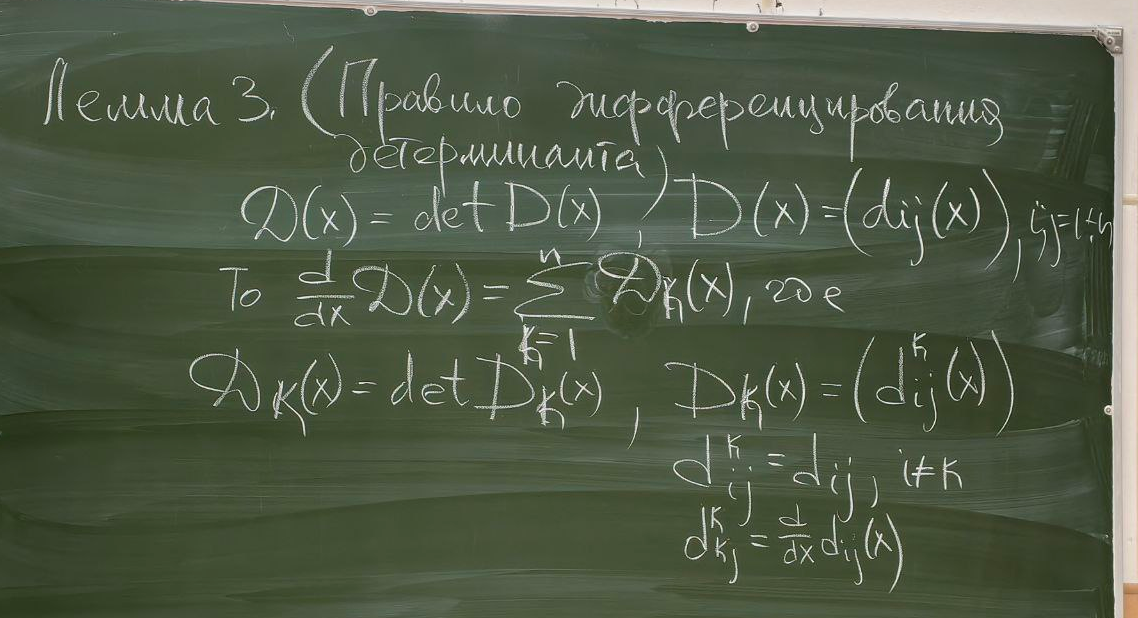 Лемма 3. (Правило дифференцирования
детерминанта)
𝒟(x) = det D(x), D(x) = (dij(x)), i,j=1÷n
То d/dx 𝒟(x) = ∑_{k=1}^{n} 𝒟k(x), где
𝒟k(x) = det Dk(x), Dk(x) = (d^k_ij(x))
d^k_ij = dij, i≠k
d^k_kj = d/dx dij(x)